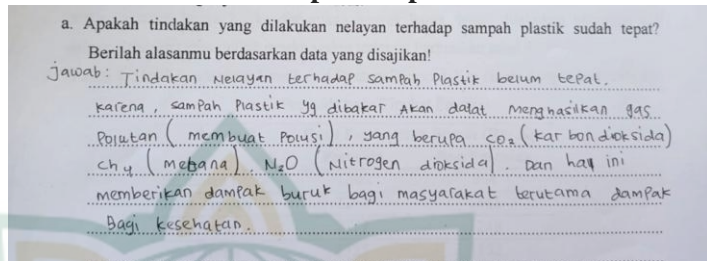 a. Apakah tindakan yang dilakukan nelayan terhadap sampah plastik sudah tepat?
Berilah alasanmu berdasarkan data yang disajikan!
Jawab : Tindakan Nelayan terhadap sampah Plastik belum tepat.
karena, sampah Plastik yg dibakar Akan dalat menghasilkan gas
Polutan ( membuat Polusi ), yang berupa CO2 ( karbondioksida )
CH4 ( metana ). N2O ( Nitrogen dioksida ). Dan hal ini
memberikan dampak buruk bagi masyarakat terutama dampak
Bagi kesehatan.